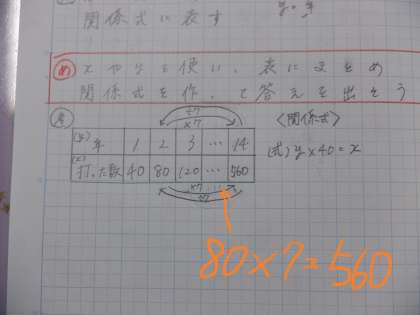 関係式に表す
め xやyを使い、表にまとめ
関係式を作って答えを出そう
×7
×7
〈関係式〉
(y)年 1 2 3 … 14
(x)打った数 40 80 120 … 560
(式) y×40=x
×7
×7
80×7=560